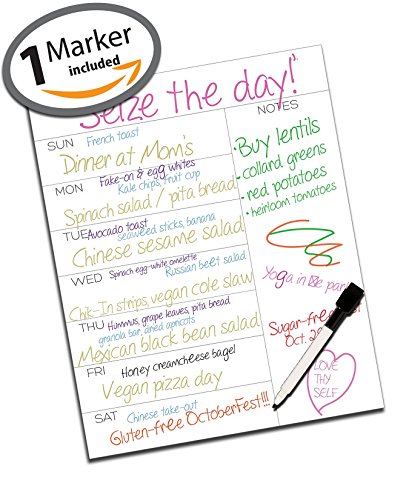 1 Marker
included
Seize the day!
NOTES
SUN
French toast
Dinner at Mom's
MON
Fake-on & egg whites
Kale chips, fruit cup
Spinach salad / pita bread
TUE
Avocado toast
seaweed sticks, banana
Chinese sesame salad
WED
Spinach egg-white omelette
Russian beet salad
Chik-In strips, vegan cole slaw
THU
Hummus, grape leaves, pita bread
granola bar, dried apricots
Mexican black bean salad
FRI
Honey creamcheese bagel
Vegan pizza day
SAT
Chinese take-out
Gluten-free OctoberFest!!!
• Buy lentils
• collard greens
• red potatoes
• heirloom tomatoes
Yoga in
Sugar-free
Oct.
LOVE
THY
SELF